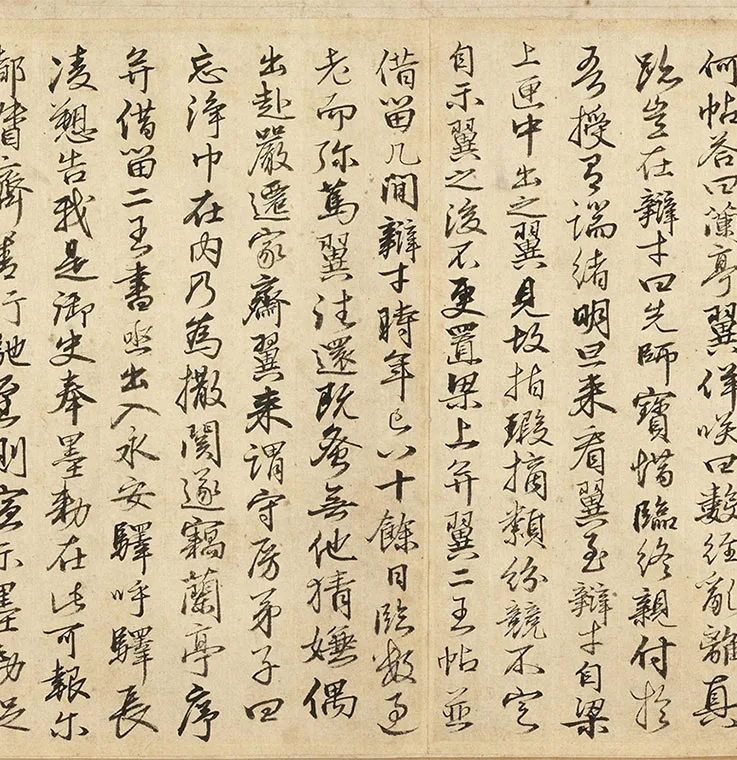 何帖答曰蘭亭翼佯咲曰數經亂離真
跡豈在辯才曰先師寶惜臨終親付於
吾授有端緒明旦来看翼至辯才自梁
上匣中出之翼見故指瑕摘纇紛競不定
自示翼之後不更置梁上并翼二王帖並
借留几間辯才時年已八十餘日臨數過
老而弥篤翼往還既多無他猜嫌偶
出赴嚴遷家齋翼来謂守房弟子曰
忘淨巾在內乃為撒關遂竊蘭亭序
并借留二王書亟出入永安驛呼驛長
凌愬告我是御史奉墨勑在此可報尔
都督齊善行馳至則宣示墨勑足